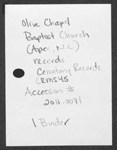 Olive Chapel
Baptist Church
(Apex, N.C.)
records
Cemetery Records
CRMS45
Accession #
2011.0071
1 Binder